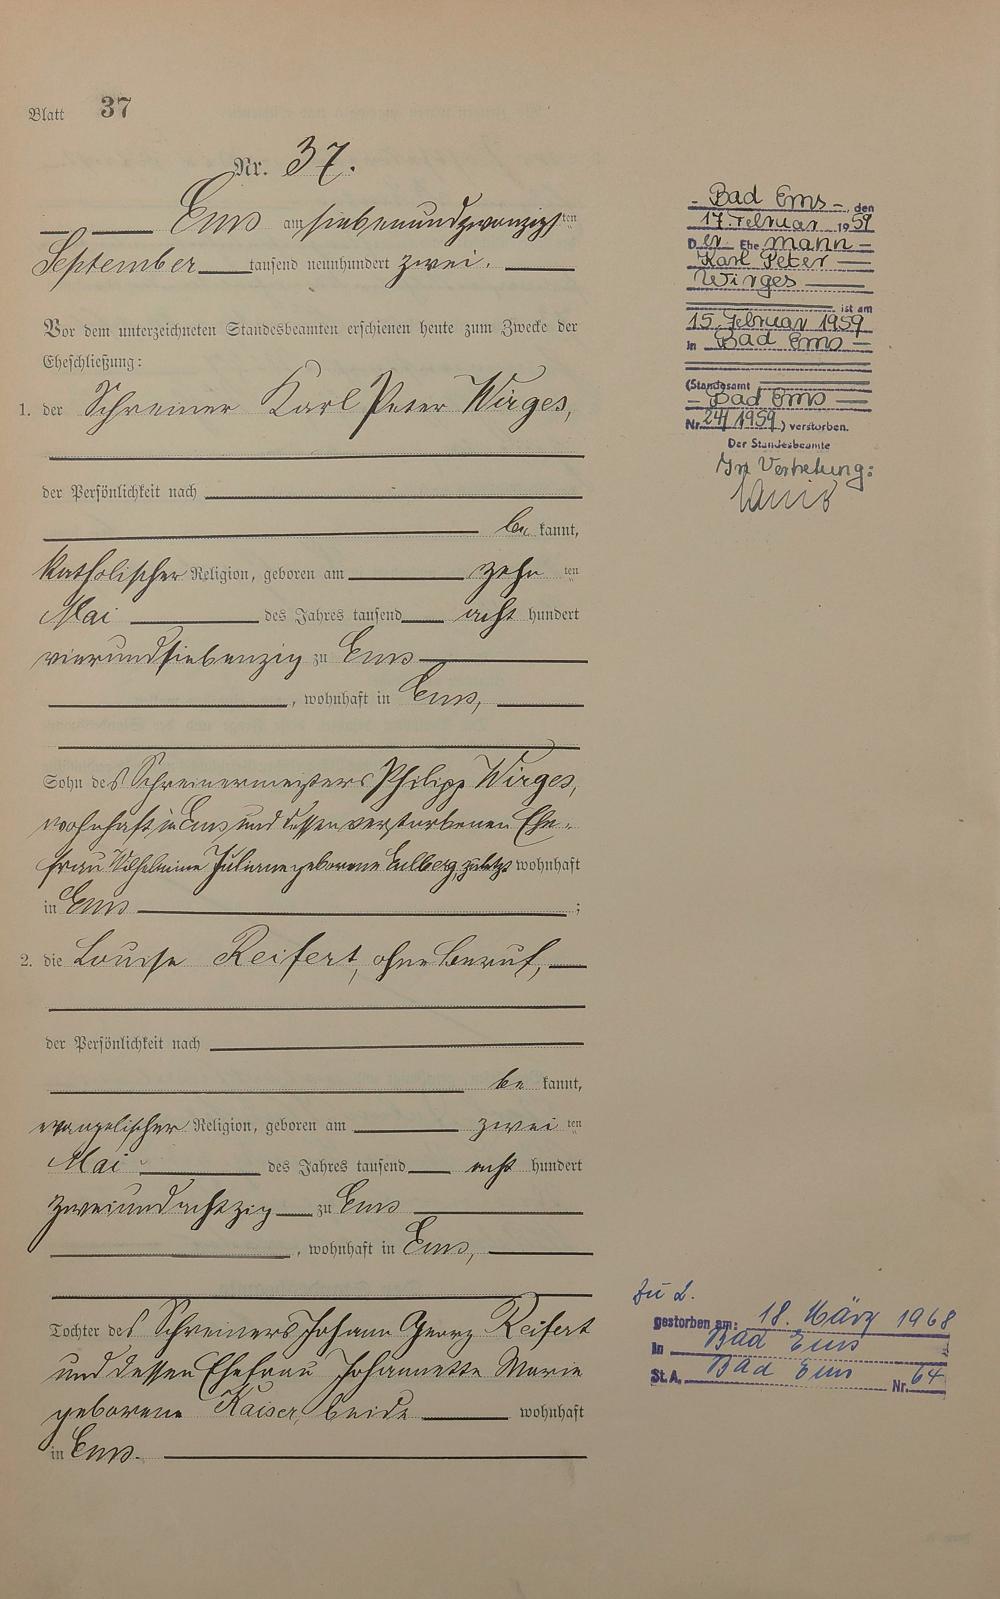 Blatt 37
Nr. 37.
Ems am siebenundzwanzigsten
September tausend neunhundert zwei.
Vor dem unterzeichneten Standesbeamten erschienen heute zum Zwecke der
Eheschließung:
1. der Schreiner Karl Peter Wirges,
der Persönlichkeit nach
be kannt,
katholischer Religion, geboren am zehn ten
Mai des Jahres tausend acht hundert
vierundsiebenzig zu Ems
, wohnhaft in Ems,
Sohn des Schreinermeisters Philipp Wirges,
wohnhaft in Ems und dessen verstorbenen Ehe-
frau Wilhelmine Juliane geborene zuletzt wohnhaft
in Ems ;
2. die Louise Reifert, ohne Beruf,
der Persönlichkeit nach
be kannt,
evangelischer Religion, geboren am zwei ten
Mai des Jahres tausend acht hundert
zweiundachtzig zu Ems
, wohnhaft in Ems,
Tochter des Schreiners Johann Georg Reifert
und dessen Ehefrau Johannette Marie
geborene Kaiser, beide wohnhaft
in Ems.
- Bad Ems -, den
17. Februar 1959
Der Ehe mann -
Karl Peter
Wirges
ist am
15. Februar 1959
in Bad Ems
(Standesamt
- Bad Ems
Nr. 24/1959) verstorben.
Der Standesbeamte
In Vertretung:
Zu 2.
gestorben am: 18. März 1968
In Bad Ems
St. A. Bad Ems Nr. 64